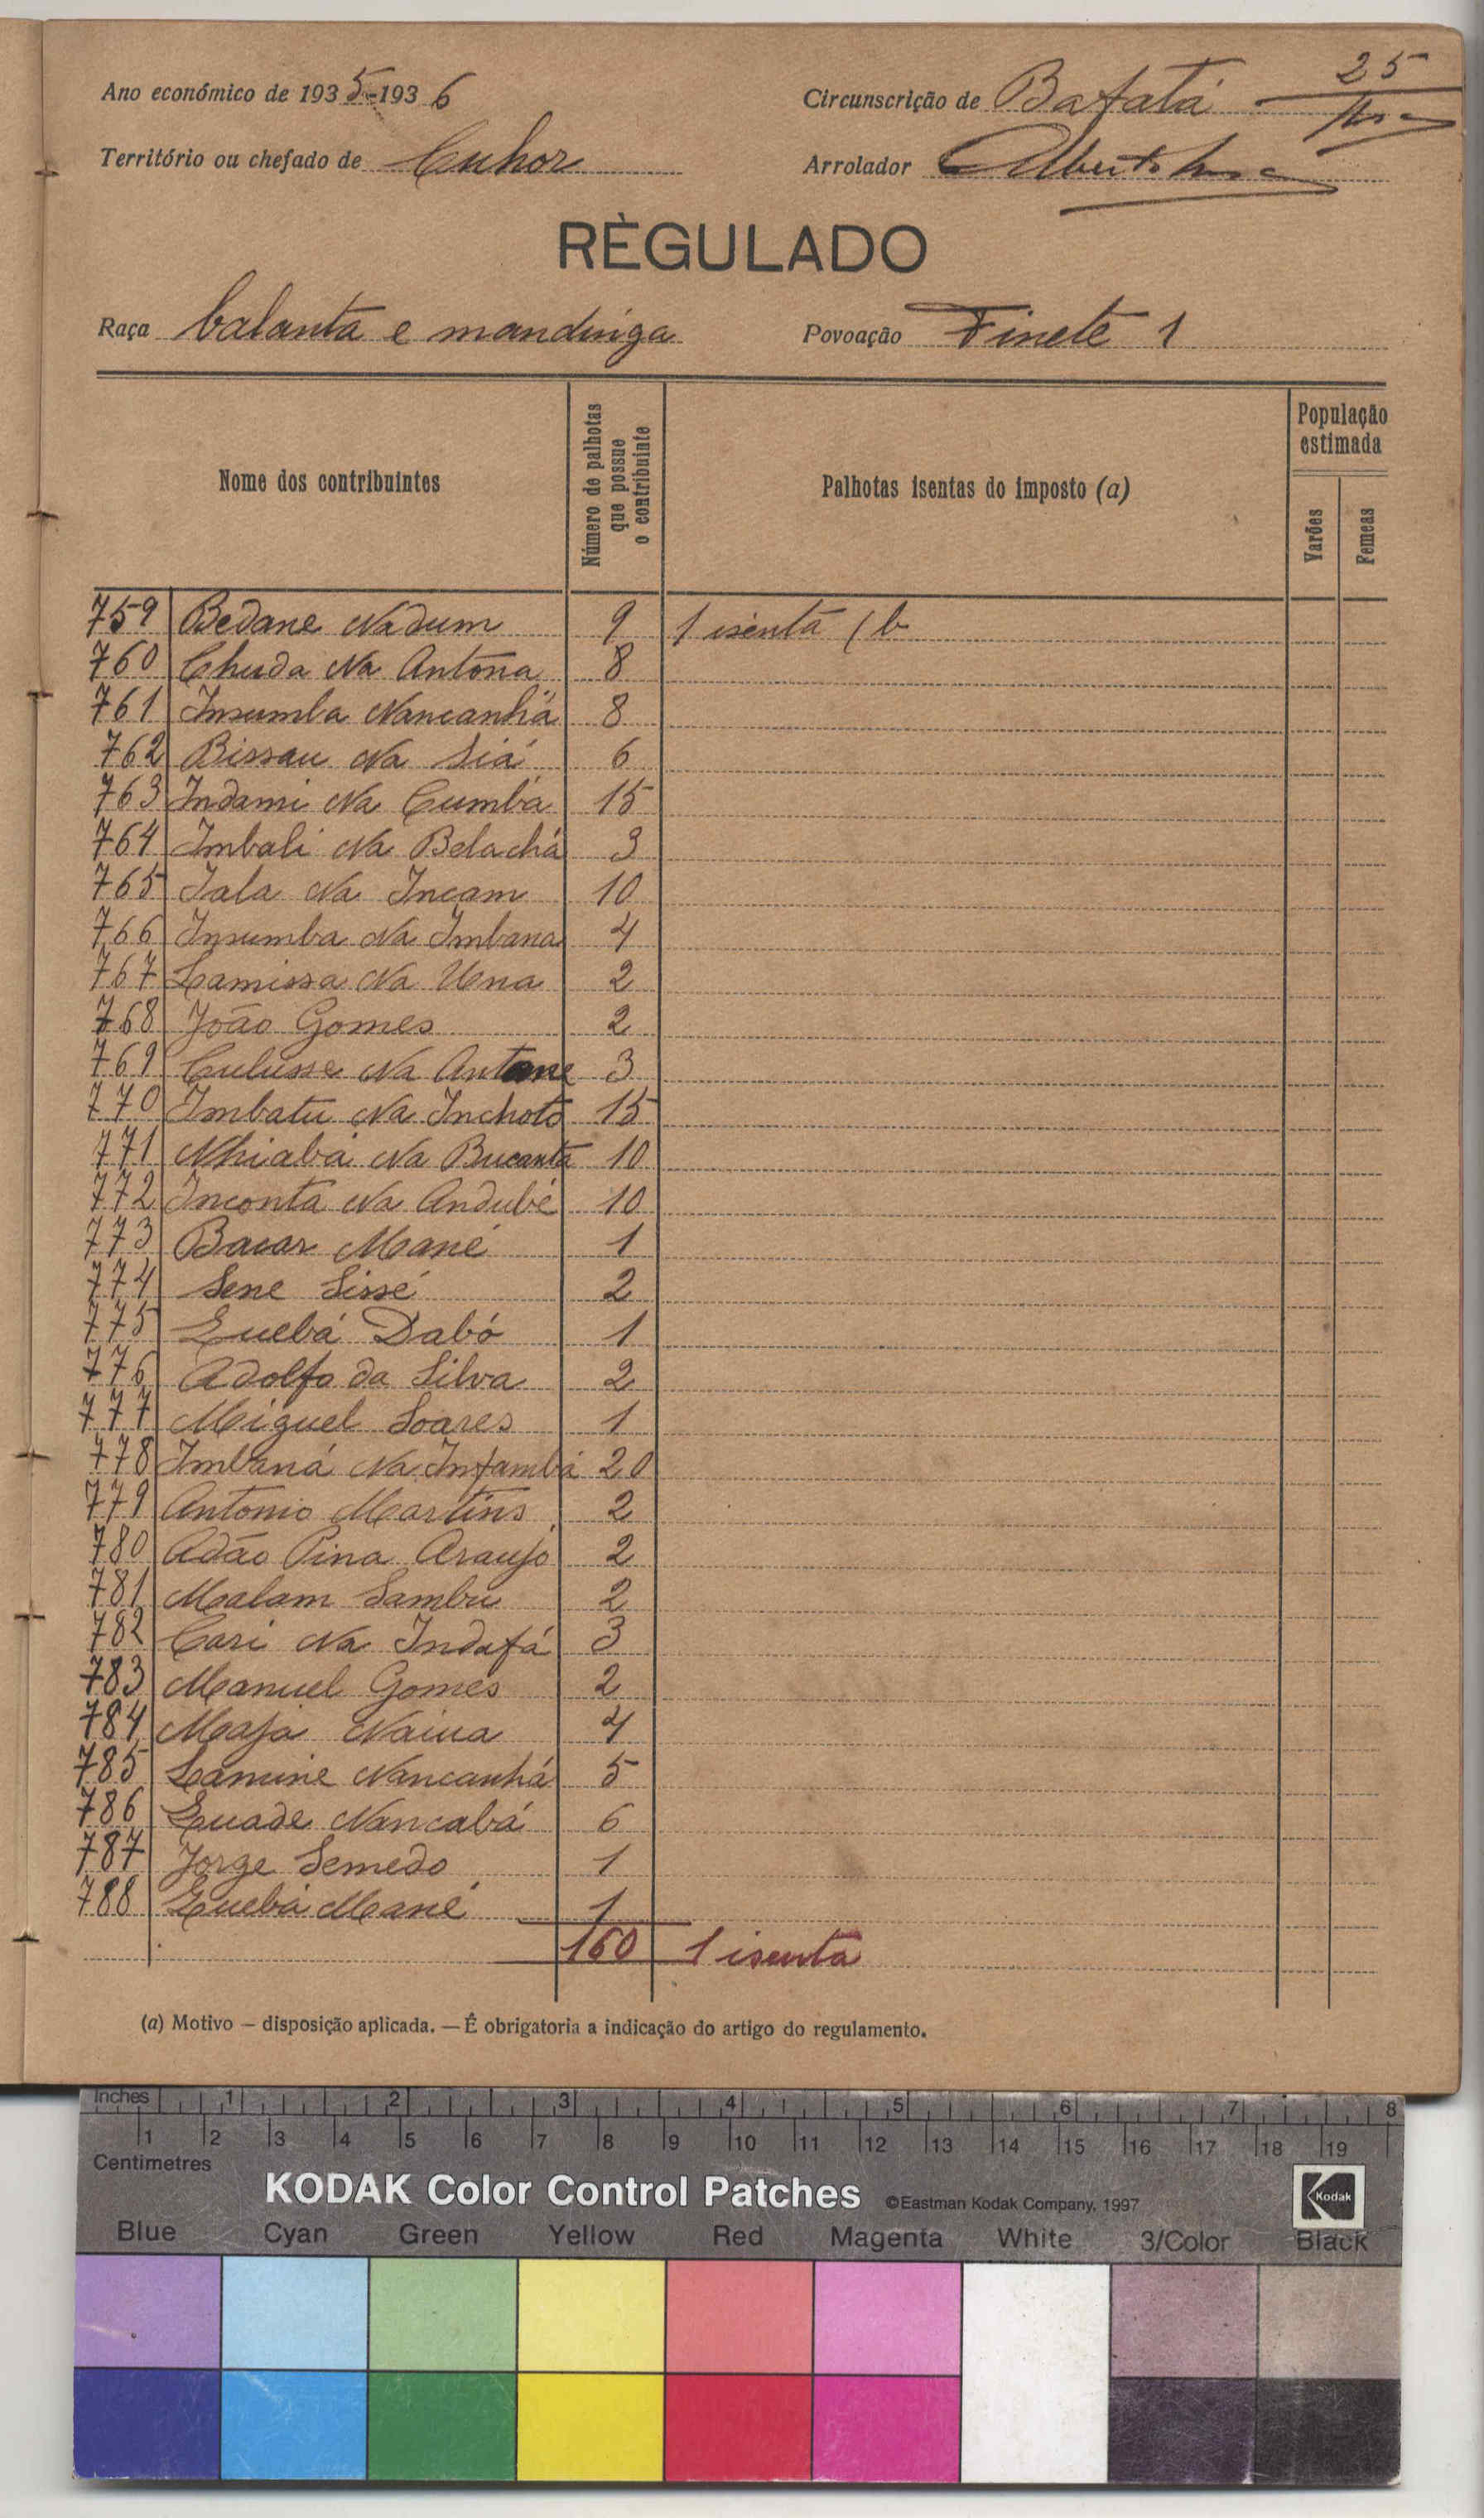 25
Ano económico de 1935-1936 Circunscrição de Bafatá
Território ou chefado de Cuhor Arrolador Alberto
RÈGULADO
Raça balanta e mandinga Povoação Finete 1
Nome dos contribuintes
Número de palhotas que possue o contribuinte
Palhotas isentas do imposto (a)
População estimada
Varões
Femeas
759 Bedane Nadum 9 1 isenta / b
760 Chuda Na Antona 8
761 Insumba Nancanhá 8
762 Bissau Na Siá 6
763 Indami Na Cumba 15
764 Imbali Na Belachá 3
765 Jala Na Incam 10
766 Insumba Na Imbana 4
767 Lamissa Na Uena 2
768 João Gomes 2
769 Culusse Na Antone 3
770 Imbatu Na Inchoto 15
771 Nhiaba Na Bucanta 10
772 Inconta Na Andubé 10
773 Bacar Mané 1
774 Sene Sissé 2
775 Quebá Dabó 1
776 Adolfo da Silva 2
777 Miguel Soares 1
778 Imbaná Na Infamba 20
779 Antonio Martins 2
780 Adão Pina Araujo 2
781 Malam Sambu 2
782 Cari Na Indafá 3
783 Manuel Gomes 2
784 Maja Naiua 4
785 Lamine Nancanhá 5
786 Quade Nancabá 6
787 Jorge Semedo 1
788 Quebá Mané 1
160 1 isenta
(a) Motivo — disposição aplicada. — É obrigatoria a indicação do artigo do regulamento.
Inches 1 2 3 4 5 6 7 8
1 2 3 4 5 6 7 8 9 10 11 12 13 14 15 16 17 18 19
Centimetres
KODAK Color Control Patches ©Eastman Kodak Company, 1997 Kodak
Blue Cyan Green Yellow Red Magenta White 3/Color Black